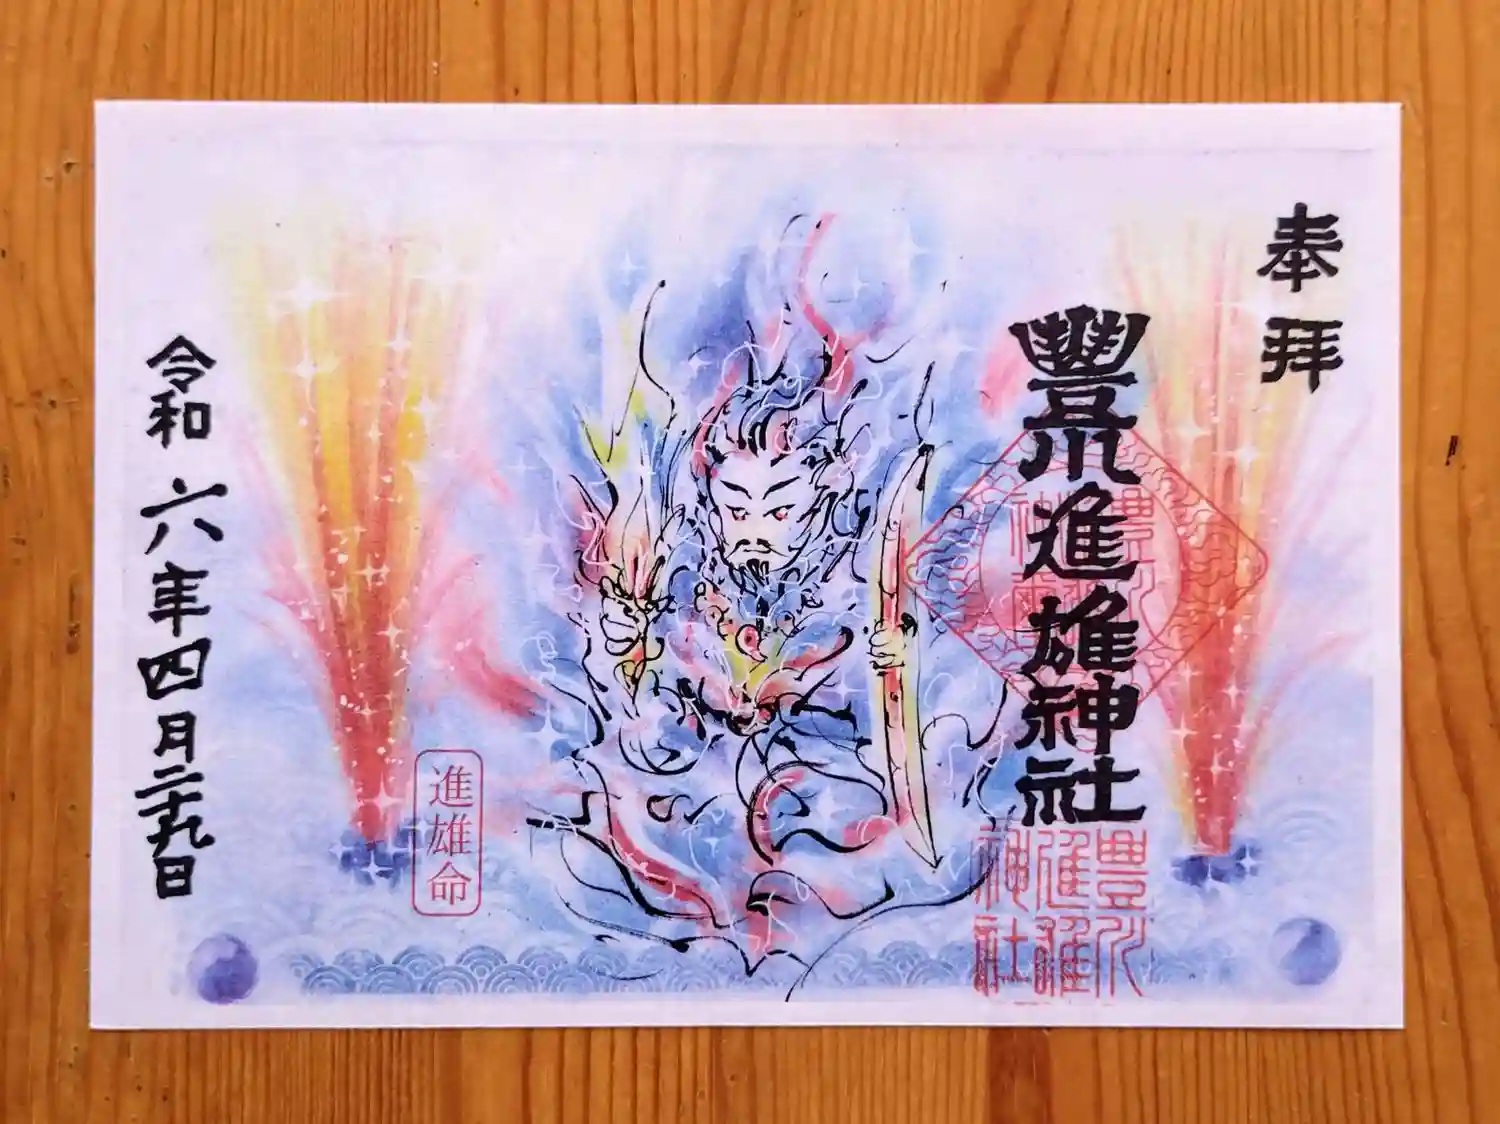 奉拝
豐川進雄神社
豊川
進雄
神社
進雄命
令和六年四月二十九日